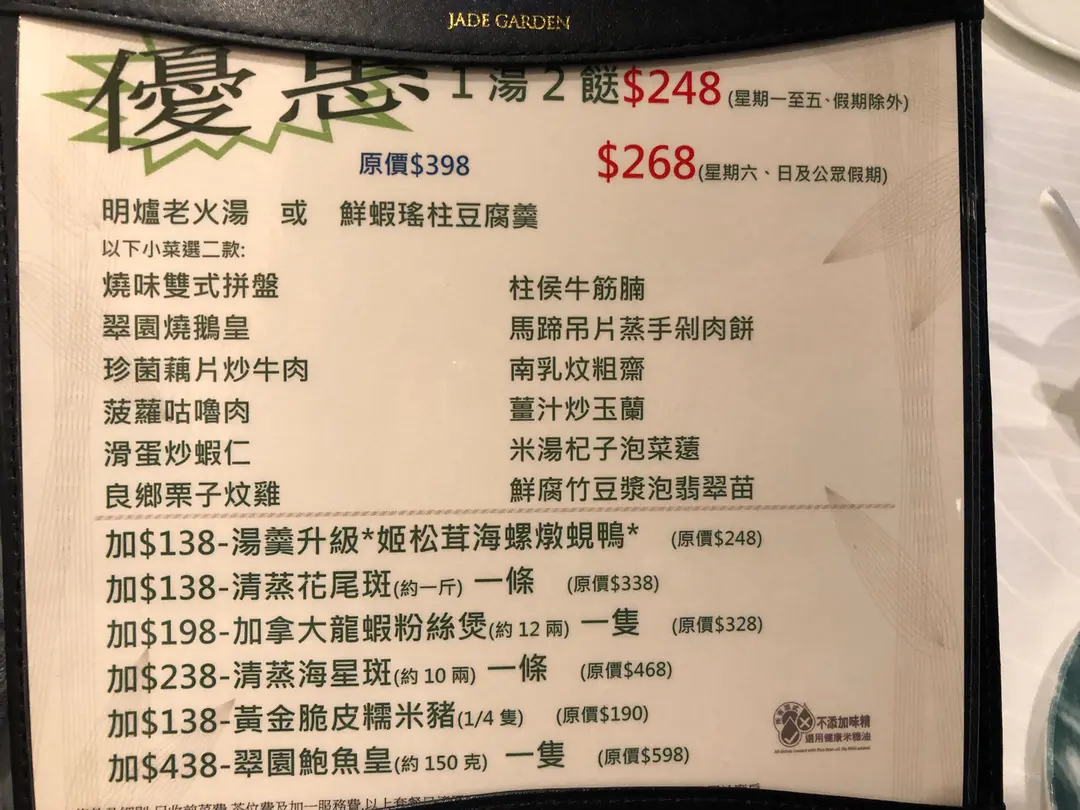 JADE GARDEN
優惠 1 湯 2 餸 $248 (星期一至五、假期除外)
原價$398 $268 (星期六、日及公眾假期)
明爐老火湯 或 鮮蝦瑤柱豆腐羹
以下小菜選二款:
燒味雙式拼盤 柱侯牛筋腩
翠園燒鵝皇 馬蹄吊片蒸手剁肉餅
珍菌藕片炒牛肉 南乳炆粗齋
菠蘿咕嚕肉 薑汁炒玉蘭
滑蛋炒蝦仁 米湯杞子泡菜薳
良鄉栗子炆雞 鮮腐竹豆漿泡翡翠苗
加$138-湯羹升級*姬松茸海螺燉蜆鴨* (原價$248)
加$138-清蒸花尾斑(約一斤) 一條 (原價$338)
加$198-加拿大龍蝦粉絲煲(約 12 兩) 一隻 (原價$328)
加$238-清蒸海星斑(約 10 兩) 一條 (原價$468)
加$138-黃金脆皮糯米豬(1/4 隻) (原價$190)
加$438-翠園鮑魚皇(約 150 克) 一隻 (原價$598)
不添加味精
選用健康米糠油
茶位費及加一服務費,以上套餐